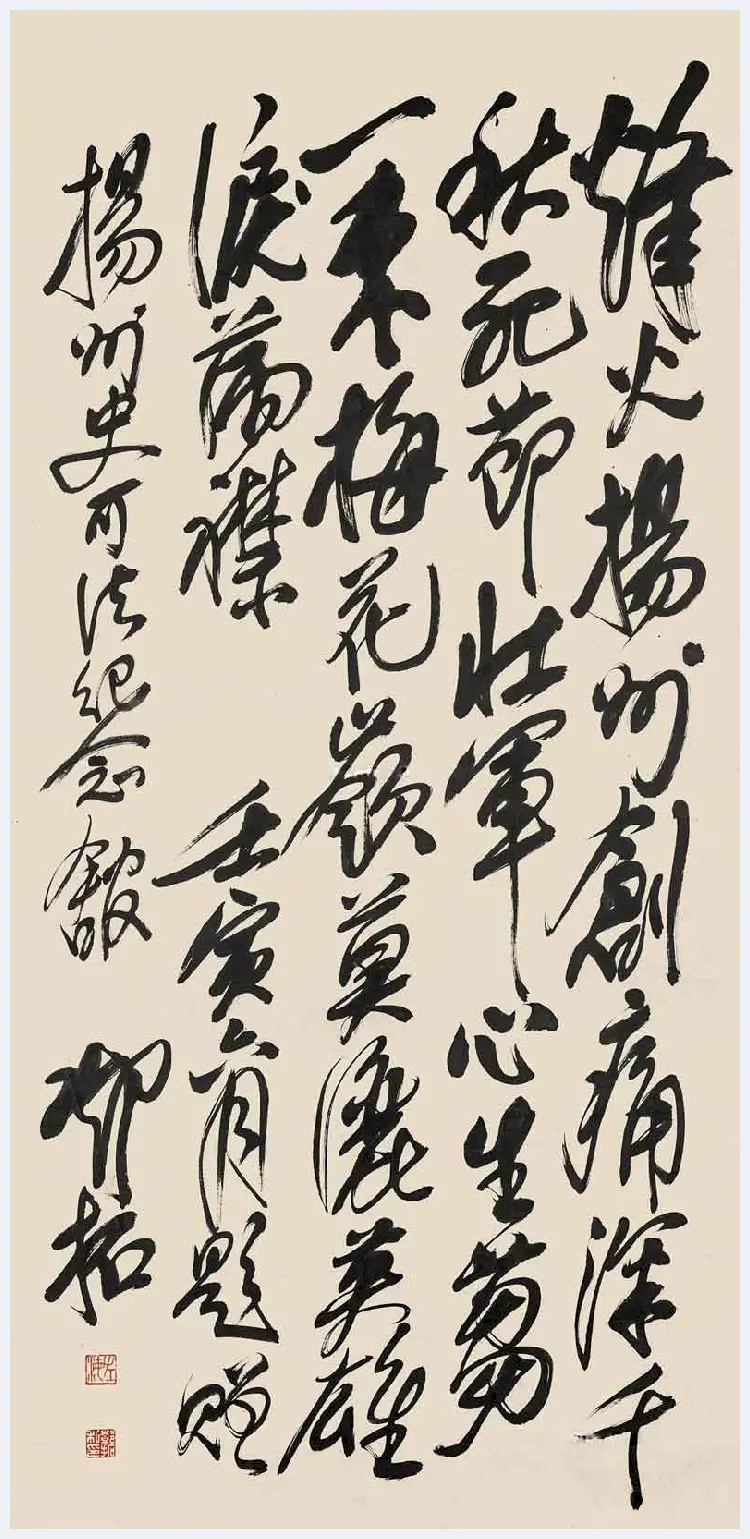 烽火揚州創痛深千
秋死節壯軍心生芻
一束梅花嶺莫灑英雄
淚滿襟 壬寅六月題贈
揚州史可法紀念館 鄧拓
左海